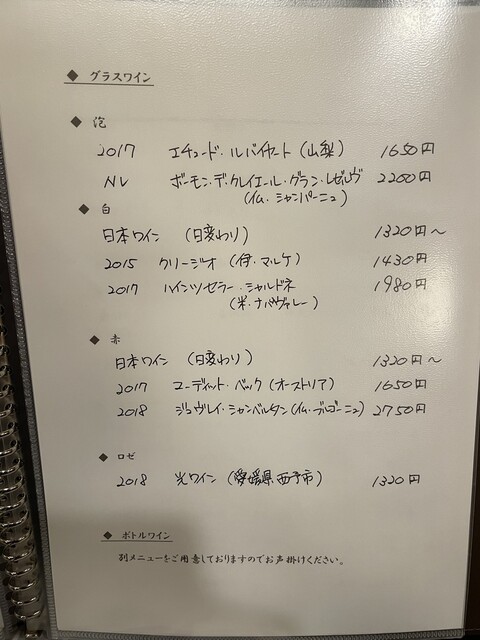 ◆ グラスワイン
◆ 泡
2017 エチュード・ルバイヤート (山梨) 1650円
NV ボーモン・デ・クレイエール・グラン・レゼルヴ 2200円
(仏・シャンパーニュ)
◆ 白
日本ワイン (日変わり) 1320円~
2015 クリージオ (伊・マルケ) 1430円
2017 ハインツセラー・シャルドネ 1980円
(米・ナパヴァレー)
◆ 赤
日本ワイン (日変わり) 1320円~
2017 ユーディット・ベック (オーストリア) 1650円
2018 ジュヴレイ・シャンベルタン (仏・ブルゴーニュ) 2750円
◆ ロゼ
2018 光ワイン (愛媛県西予市) 1320円
◆ ボトルワイン
別メニューをご用意しておりますのでお声掛けください。